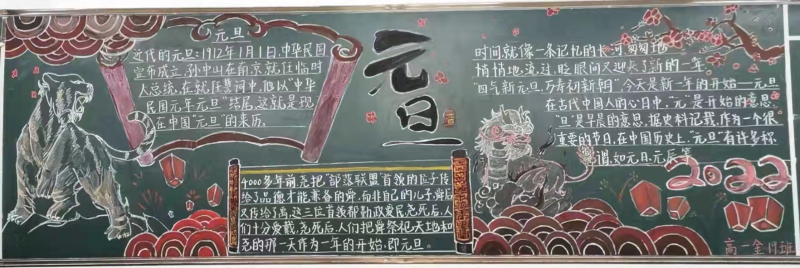 元旦
近代的元旦:1912年1月1日,中华民国
宣布成立,孙中山在南京就任临时
人总统,在就任誓词中,他以"中华
民国元年元旦"结尾,这就是现
在中国"元旦"的来历.
元旦
4000多年前尧把"部落联盟首领的位子传
给了品德才能兼备的舜,而非自己的儿子,舜后
又传给了禹,这三位首领帮助人民,尧死后,人
们十分爱戴,尧死后,人们把舜祭祀天地和
尧的那一天作为一年的开始,即元旦.
时间就像一条记忆的长河匆匆地
悄悄地流过,眨眼间又迎来了新的一年
"四气新元旦,万寿初新朝"今天是新一年的开始—元旦
在古代中国人的心目中,"元"是开始的意思.
"旦"是早晨的意思.据史料记载,作为一个很
重要的节日,在中国历史上,"元旦"有许多称
谓,如元旦,元辰等
2022
高一金17班